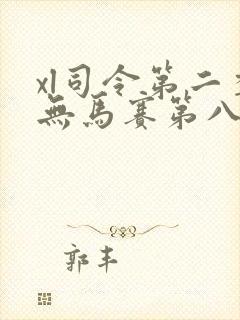 xl司令第二
無馬賽第八
郭丰